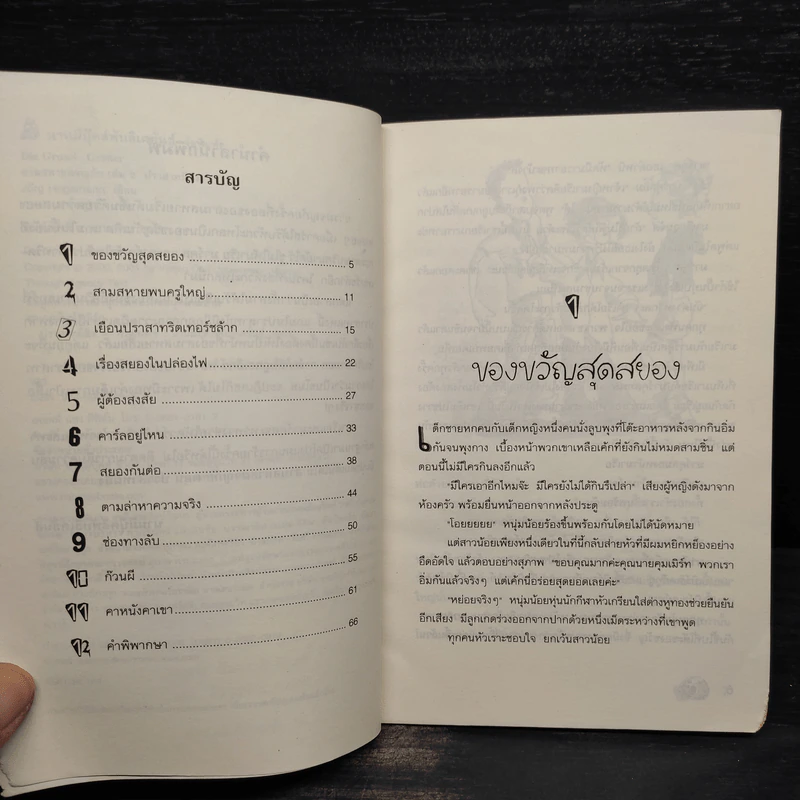 สารบัญ
1 ของขวัญสุดสยอง 5
2 สามสหายพบครูใหญ่ 11
3 เยือนปราสาทริดเทอร์ชล้าก 15
4 เรื่องสยองในปล่องไฟ 22
5 ผู้ต้องสงสัย 27
6 คาร์ลอยู่ไหน 33
7 สยองกันต่อ 38
8 ตามล่าหาความจริง 44
9 ช่องทางลับ 50
10 ก๊วนผี 55
11 คาหนังคาเขา 61
12 คำพิพากษา 66
1
ของขวัญสุดสยอง
เด็กชายหกคนกับเด็กหญิงหนึ่งคนนั่งลูบพุงที่โต๊ะอาหารหลังจากกินอิ่ม
กันจนพุงกาง เบื้องหน้าพวกเขาเหลือเค้กที่ยังกินไม่หมดสามชิ้น แต่
ตอนนี้ไม่มีใครกินลงอีกแล้ว
"มีใครเอาอีกไหมจ๊ะ มีใครยังไม่ได้กินรึเปล่า" เสียงผู้หญิงดังมาจาก
ห้องครัว พร้อมยื่นหน้าออกจากหลังประตู
"โอยยยยย" หนุ่มน้อยร้องขึ้นพร้อมกันโดยไม่ได้นัดหมาย
แต่สาวน้อยเพียงหนึ่งเดียวในที่นี้กลับส่ายหัวที่มีผมหยิกหยืองอย่าง
อึดอัดใจ แล้วตอบอย่างสุภาพ "ขอบคุณมากค่ะคุณนายคุมเมิร์ท พวกเรา
อิ่มกันแล้วจริงๆ แต่เค้กนี่อร่อยสุดยอดเลยค่ะ"
"หย่อยจริงๆ" หนุ่มน้อยหุ่นนักกีฬาหัวเกรียนใส่ต่างหูทองช่วยยืนยัน
อีกเสียง มีลูกเกดร่วงออกจากปากด้วยหนึ่งเม็ดระหว่างที่เขาพูด
ทุกคนหัวเราะชอบใจ ยกเว้นสาวน้อย